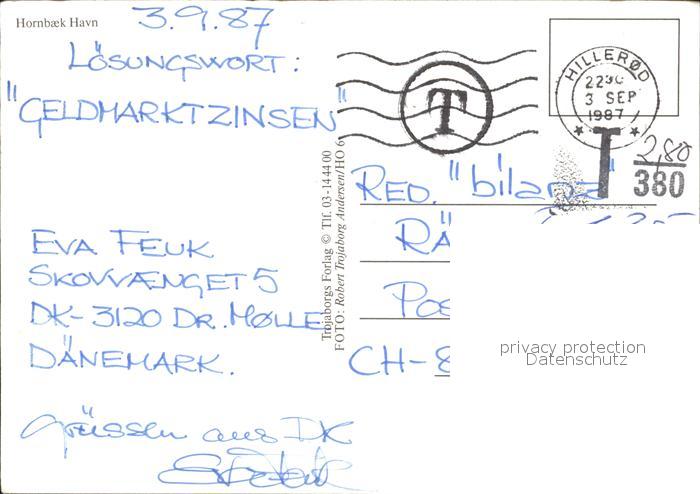 Hornbæk Havn
3.9.87
LÖSUNGSWORT:
"GELDMARKTZINSEN"
EVA FEUK
SKOVVÆNGET 5
DK-3120 DR. MØLLE
DÄNEMARK.
Grüssen aus DK
Trojaborgs Forlag © Tlf. 03-14 44 00
FOTO: Robert Trojaborg Andersen/HO 6
T
HILLERØD
3 SEP
1987
T
2,80
380
RED. "bilanz"
RÄ
Pos
CH-8
privacy protection
Datenschutz